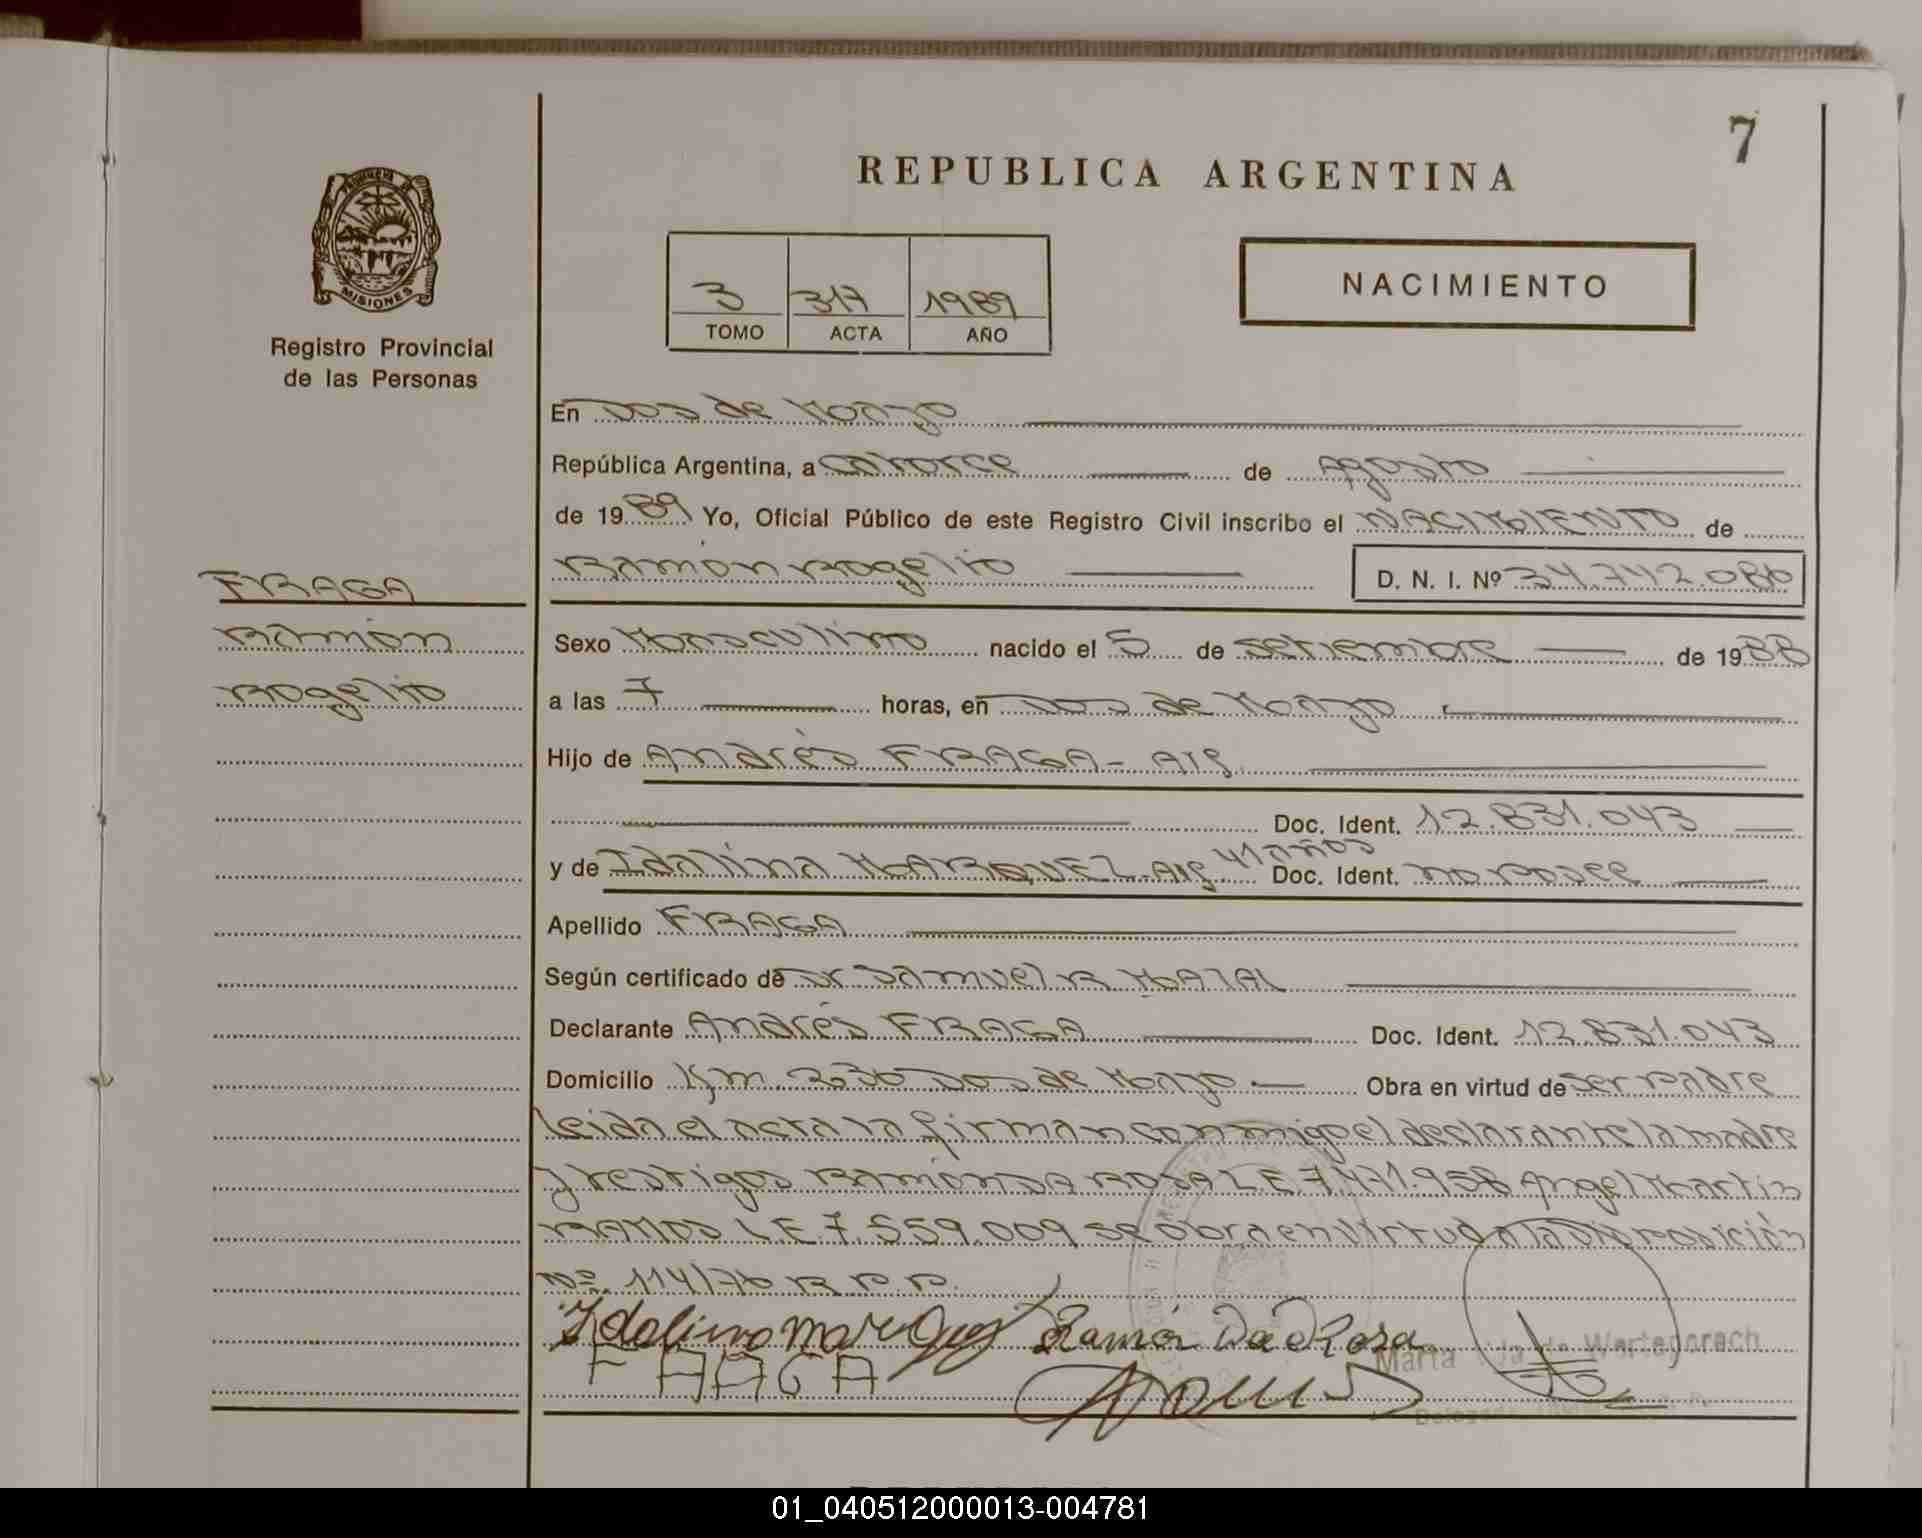 7
REPUBLICA ARGENTINA
PROVINCIA DE
MISIONES
Registro Provincial
de las Personas
3 317 1989
TOMO ACTA AÑO
NACIMIENTO
En Dos de Mayo
República Argentina, a catorce de Agosto
de 1989 Yo, Oficial Público de este Registro Civil inscribo el NACIMIENTO de
Ramón Rogelio D. N. I. Nº 34.742.086
FRAGA
Ramón
Rogelio
Sexo Masculino nacido el 5 de setiembre de 1988
a las 7 horas, en Dos de Mayo
Hijo de Andrés FRAGA - Arg.
Doc. Ident. 12.831.043
y de Idalina MARQUEZ - Arg 41 años Doc. Ident. no posee
Apellido FRAGA
Según certificado de Dr Samuel R MAZAL
Declarante Andrés FRAGA Doc. Ident. 12.831.043
Domicilio Km. 230 Dos de Mayo Obra en virtud de ser padre
Leida el acta la firman conmigo el declarante la madre
y testigos Ramón DA ROSA L.E 7.471.958 Angel Martin
RAMOS L.E. 7.559.009 se obra en virtud a la Disposición
Nº 114/76 R.P.P.
Idalina Marquez Ramón Da Rosa
FRAGA
Marta de Warteporach
01_040512000013-004781